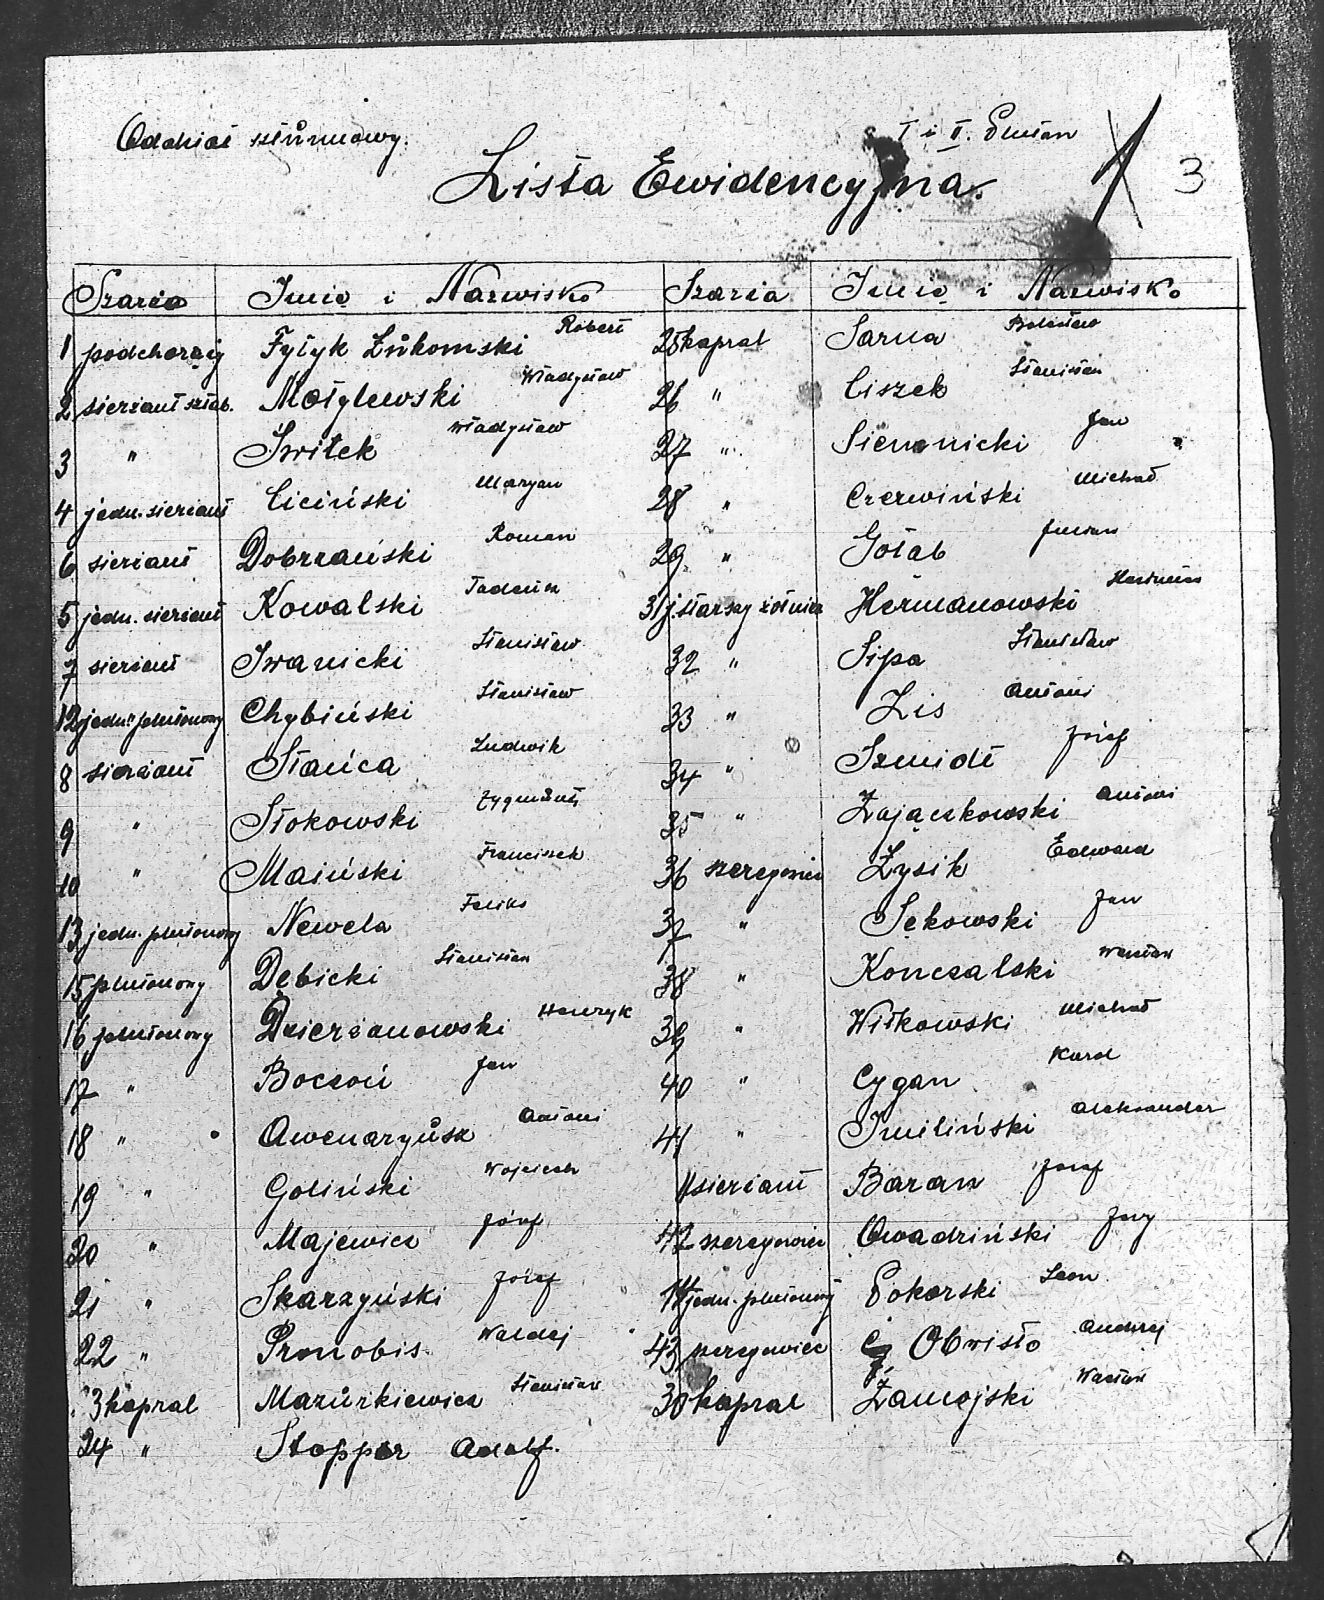 Oddział szturmowy.
I i II. Pluton
Lista Ewidencyjna.
3
Szarża Imię i Nazwisko
1 podchorąży Fytyk Łukomski Robert
2 sierżant sztab. Motylewski Władysław
3 " Świtek Władysław
4 jedn. sierżant Ciciński Maryan
6 sierżant Dobrzański Roman
5 jedn. sierżant Kowalski Tadeusz
7 sierżant Iwanicki Stanisław
12 jedn. plutonowy Chybiński Stanisław
8 sierżant Stańca Ludwik
9 " Stokowski Zygmunt
10 " Maiński Franciszek
13 jedn. plutonowy Newela Feliks
15 plutonowy Dębicki Stanisław
16 plutonowy Dzierżanowski Henryk
17 " Boczoń Jan
18 " Awenaryusz Antoni
19 " Goliński Wojciech
20 " Majewicz Józef
21 " Skarzyński Józef
22 " Pronobis
23 kapral Mazurkiewicz Stanisław
24 " Stopper Adolf.
Szarża Imię i Nazwisko
25 kapral Sarna Bolesław
26 " Ciszek Stanisław
27 " Siennicki Jan
28 " Czerwiński Michał
29 " Gołab Julian
31 j. starszy żołnierz Hermanowski
32 " Sipa Stanisław
33 " Lis Antoni
34 " Szmidt Józef
35 " Zajączkowski Antoni
36 szeregowiec Zysik Edward
37 " Sękowski Jan
38 " Konczalski Wacław
39 " Witkowski Michał
40 " Cygan Karol
41 " Imiliński Aleksander
11 sierżant Baran Józef
42 szeregowiec Owadziński Jerzy
14 jedn. plutonowy Pokorski Leon
43 szeregowiec Obristo Andrzej
30 kapral Zamojski Wacław